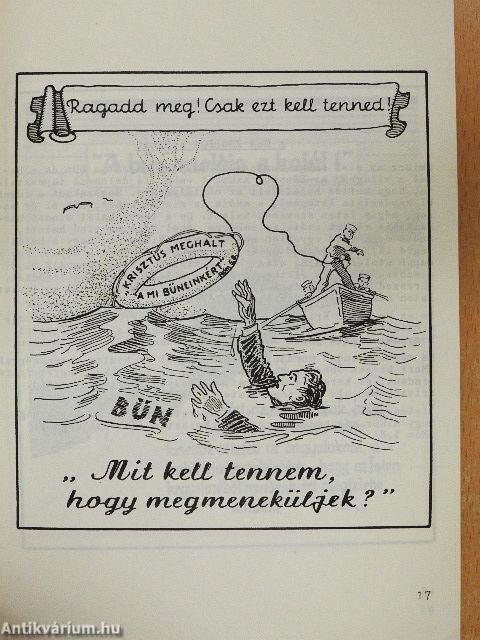 Ragadd meg! Csak ezt kell tenned!
"KRISZTUS MEGHALT
A MI BŰNEINKÉRT"
BŰN
„Mit kell tennem,
hogy megmeneküljek?"
17
Antikvárium.hu